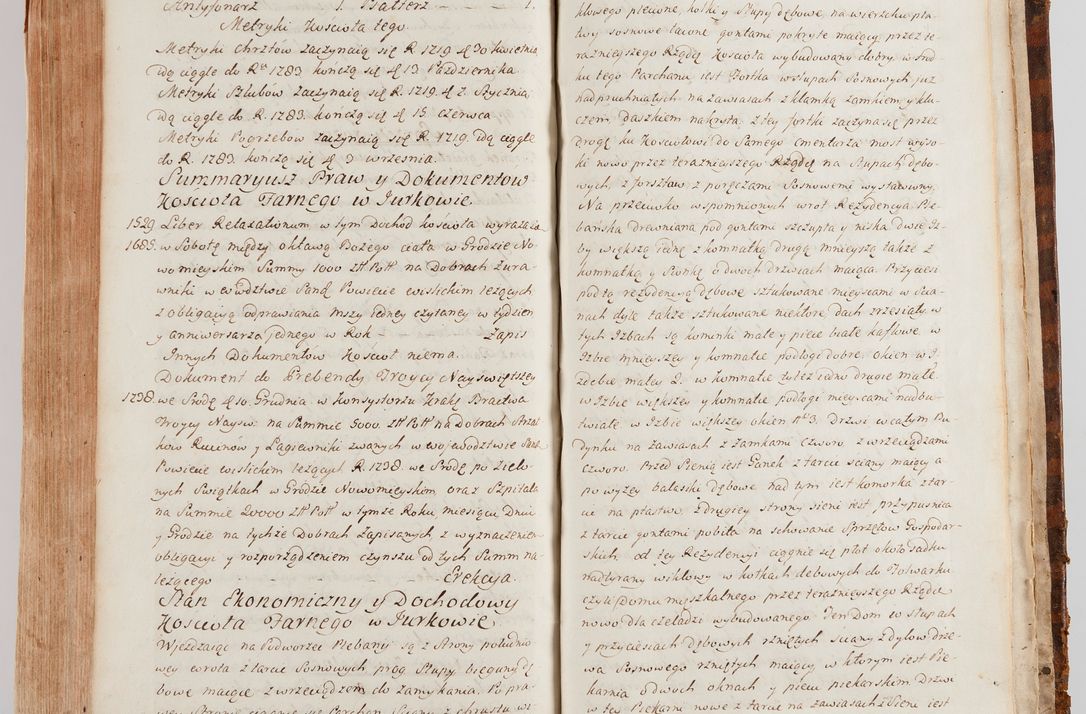 Antyfonarz 1. Psałterz 1.
Metryki Kościoła tego
Metryki Chrztow zaczynaią się R. 1719 d 30 kwietnia
idą ciągle do R. 1783. kończą się d 13 Października.
Metryki Szlubow zaczynaią się R. 1719. d 7. Stycznia
idą ciągle do R. 1783. kończą się d 15 czerwca
Metryki Pogrzebow zaczynaią się R 1719. idą ciągle
do R. 1783. kończą się d 3 września.
Summaryusz Praw y Dokumentow
Kościoła Farnego w Jurkowie
1529 Liber Retaxationum w tym Dochod kościoła wyrażaza
1685. w Sobotę między oktawą Bożego ciała w Grodzie No-
womieyskim Summy 1000 Zł Pol na Dobrach Żura-
wniki w ewództwie Sand Powiecie wislickim leżących
z obligacyą odprawiania mszy iedney czytaney w tydzien
y anniwersarza jednego w Rok – Zapis
Innych Dokumentow kościoł niema.
Dokument do Prebendy Troycy Nayswiętszey
1738. we srodę d 10. Grudnia w Konsystorzu Krak Bractwa
Troycy Naysw. na Summie 5000. Zł Pol na Dobrach Strzał
kow Kucinow y Łagiewniki zwanych w wojewodztwie Sand
Powiecie wislickim leżących R. 1738. we srodę po zielo-
nych swiątkach w Grodzie Nowomieyskim oraz Szpitala
na Summie 20000 Zł Pol w tymze Roku, miesiącu Dniu
y Grodzie na tychże Dobrach Zapisanych, z wyznaczeniem
obligacyi y rozporządzeniem czynszu od tych Summ na-
lezącego – – – Erekcya.
Stan Ekonomiczny y Dochodowy
Kościoła Farnego w Jurkowie
Wjeżdzaiąc na Podworze Plebanij są z strony południo
wey wrota z tarcic Sosnowych, prog Słupy, bieguny dę
bowe maiące z wrzeciądzem do zamykania. Po pra-
wey Stronie ciągnie się Parchan Sciany z chrustu wi-
klowego plecione, kołki y słupy dębowe, na wierzchu pła
twy sosnowe łacone gontami pokryte maiący przez te-
raznieyszego Rządcę kościoła wybudowany dobry, w środ-
ku tego Parchanu iest Fortka w słupach Sosnowych już
nadpruchniałych na zawiasach z klamką zamkiem y klu-
czem, daszkiem nakryta. z tey fortki zaczyna się przez
drogę ku kościołowi do samego cmentarza most wyso-
ki nowo przez teraznieyszego Rządcę na słupach dębo-
wych, z forsztow, z poręczami sosnowemi wystawiony.
Na przeciwko wspomnionych wrot Rezydencya Ple-
bańska drewniana pod gontami szczupła y niska, dwie Iz-
by większą iedną z komnatką drugą mnieyszą także z
komnatką y Sionkę o dwoch drzwiach maiąca. Przyciesi
pod tą rezydencyą dębowe sztukowane mieyscami w Scia-
nach dyle także sztukowane niektóre, dach zrzesiały w
tych Izbach są kominki małe y piece białe kaflowe, w
Izbie mnieyszey y komnatie podłogi dobre. okien w I-
zdebie małey 2. w komnatie tyleż iedno drugie małe.
w Izbie większey y komnatie podłogi mieyscami nadbu-
twiałe w Izbie większey okien No 3. Drzwi w całym Bu
dynku na zawiasach z zamkami czworo, z wrzeciądzami
czworo. Przed Sienią iest Ganek z tarcic sciany maiący a
powyzey balaski dębowe nad tym iest komorka z tar-
cic na ptastwo. z drugiey strony sieni iest przypusnia
z tarcic gontami pobita na schowanie Sprzętow Gospodar-
skich. od tey Rezydencyi ciągnie się płot około sadku
nadtyrany wiklowy w kołkach dębowych do Folwarku
czyli Domu mieszkalnego przez teraznieyszego Rządcę
nowo dla czeladzi wybudowanego. Ten Dom w słupach
y przyciesiach dębowych rzniętych, sciany z dylow drze-
wa Sosnowego rzniętych maiący, w ktorym iest Pie-
karnia o dwoch oknach y piecu piekarskim. Drzwi
w tey Piekarni nowe z tarcic na zawiasach z Sieni iest